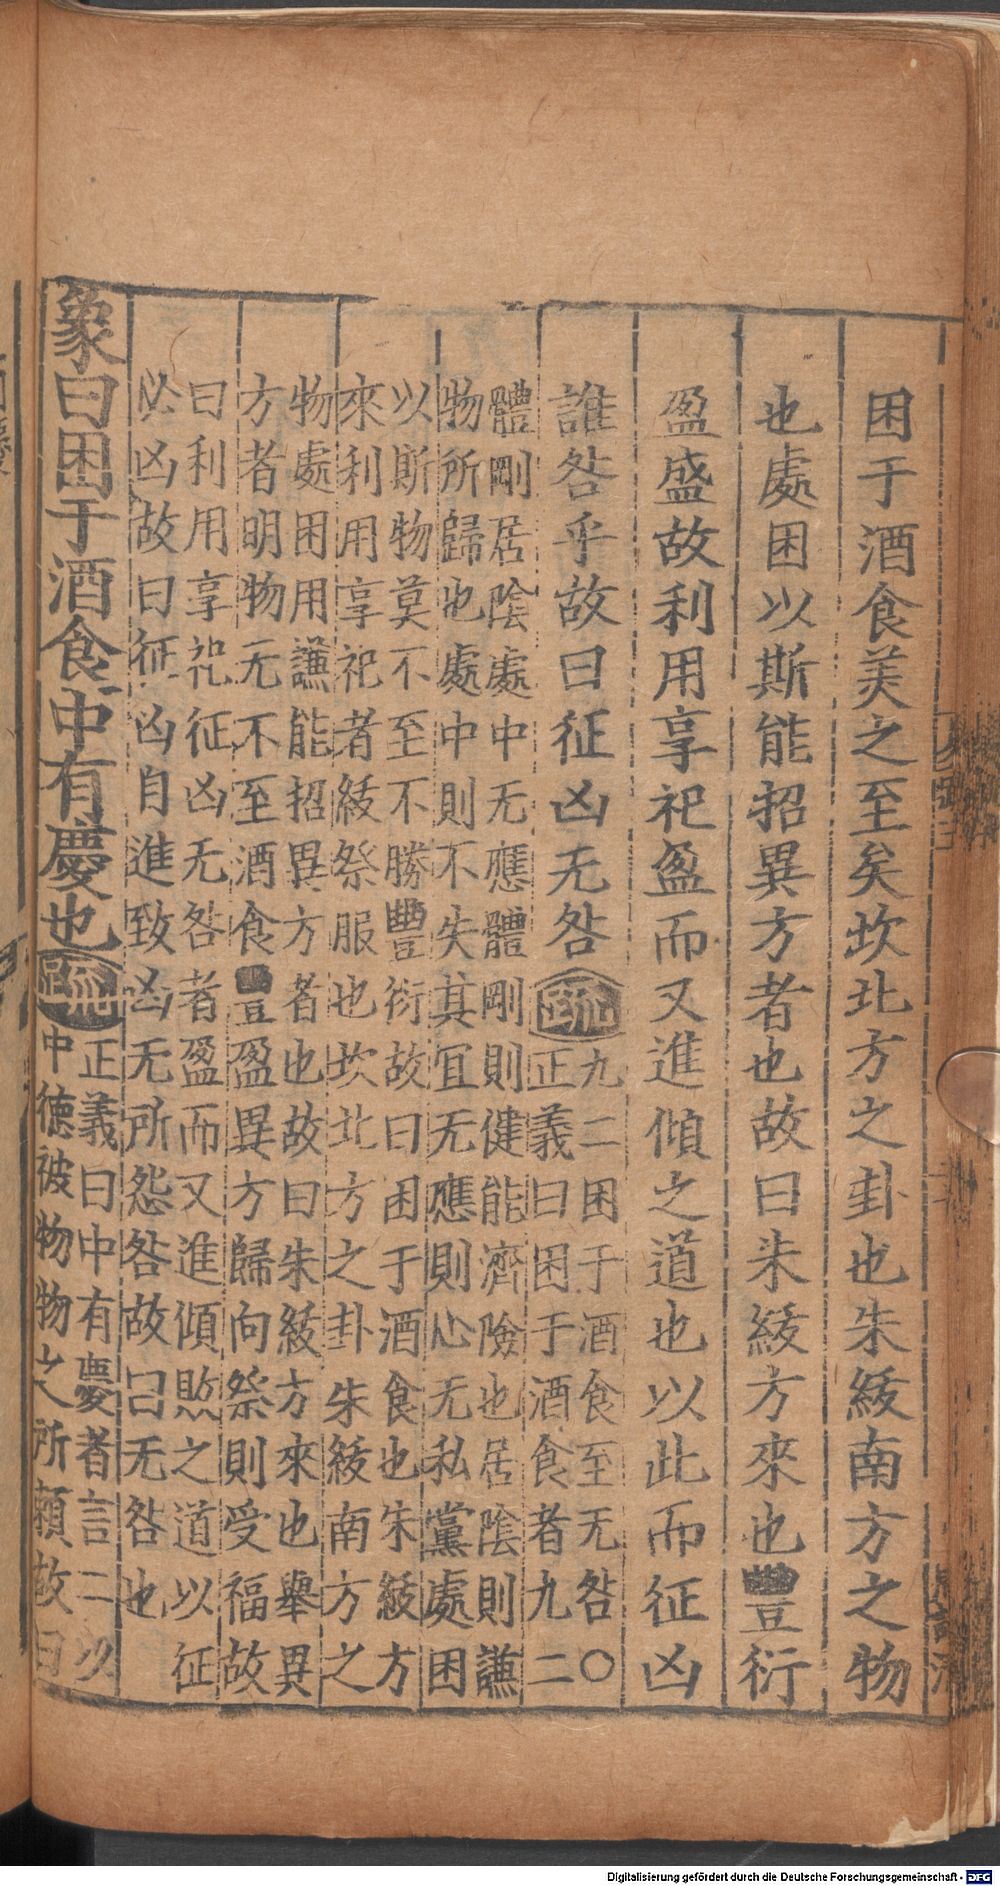 困于酒食美之至矣坎北方之卦也朱紱南方之物
也處困以斯能招異方者也故曰朱紱方來也豐衍
盈盛故利用享祀盈而又進傾之道也以此而征凶
誰咎乎故曰征凶无咎疏
九二困于酒食至无咎〇
正義曰困于酒食者九二
體剛居陰處中无應體剛則健能濟險也居陰則謙
物所歸也處中則不失其宜无應則心无私黨處困
以斯物莫不至不勝豐衍故曰困于酒食也朱紱方
來利用享祀者紱祭服也坎北方之卦朱紱南方之
物處困用謙能招異方者也故曰朱紱方來也舉異
方者明物无不至酒食豐盈異方歸向祭則受福故
曰利用享祀征凶无咎者盈而又進傾敗之道以征
必凶故曰征凶自進致凶无所怨咎故曰无咎也
象曰困于酒食中有慶也疏
正義曰中有慶者言二以
中德被物物之所賴故曰
Digitalisierung gefördert durch die Deutsche Forschungsgemeinschaft - DFG